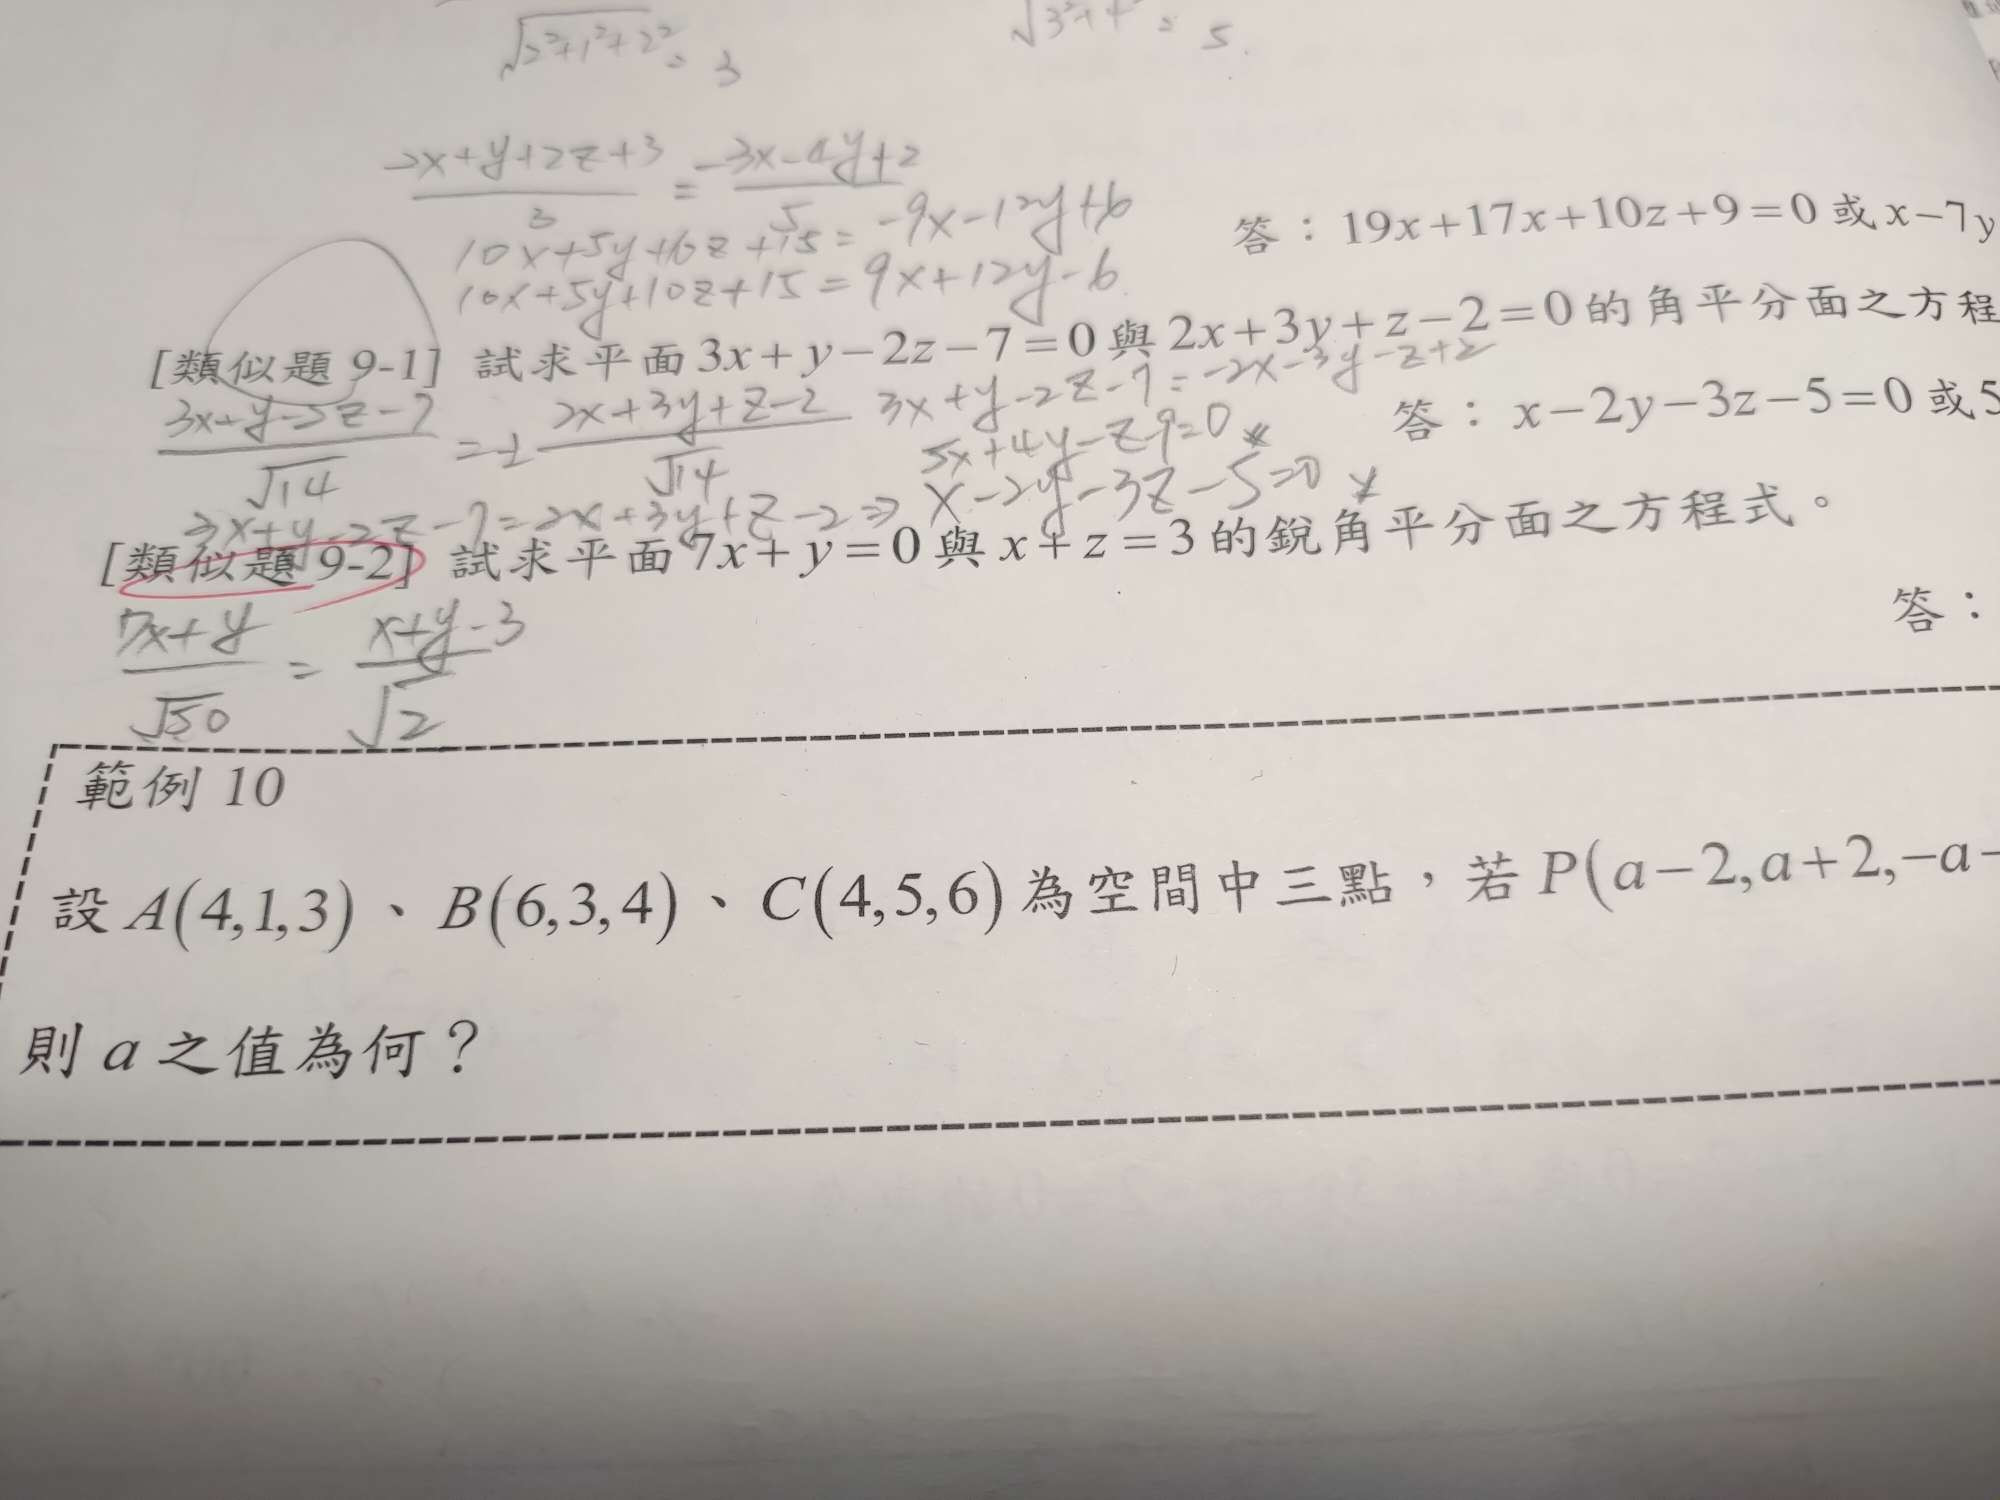 √2²+1²+2² = 3
= 5.
2x+y+2z+3 / 3 = -3x-4y+2 / 5
10x+5y+6z+15 = -9x-12y+6
答：19x+17x+10z+9=0 或 x-7y
10x+5y+10z+15 = 9x+12y-6
[類似題 9-1] 試求平面 3x+y-2z-7=0 與 2x+3y+z-2=0 的角平分面之方程
3x+y-2z-7 / √14 = ± 2x+3y+z-2 / √14
3x+y-2z-7 = -2x-3y-z+2
答：x-2y-3z-5=0 或 5
5x+4y-z-9=0
3x+y-2z-7=2x+3y+z-2 ⇒ x-2y-3z-5=0
[類似題 9-2] 試求平面 7x+y=0 與 x+z=3 的銳角平分面之方程式。
答：
7x+y / √50 = x+y-3 / √2
範例 10
設 A(4,1,3)、B(6,3,4)、C(4,5,6) 為空間中三點，若 P(a-2,a+2,-a-
則 a 之值為何？